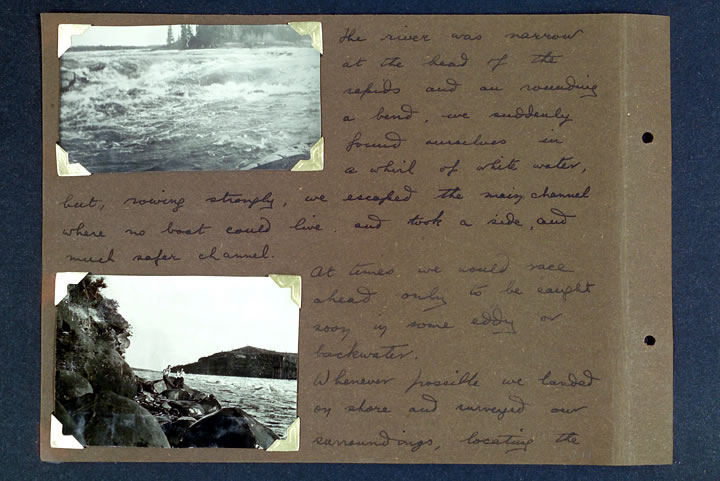 The river was narrow
at the head of the
rapids and on rounding
a bend, we suddenly
found ourselves in
a whirl of white water,
but, rowing strongly, we escaped the main channel
where no boat could live. and took a side, and
much safer channel.
At times we would race
ahead only to be caught
soon in some eddy or
backwater.
Whenever possible we landed
on shore and surveyed our
surroundings, locating the